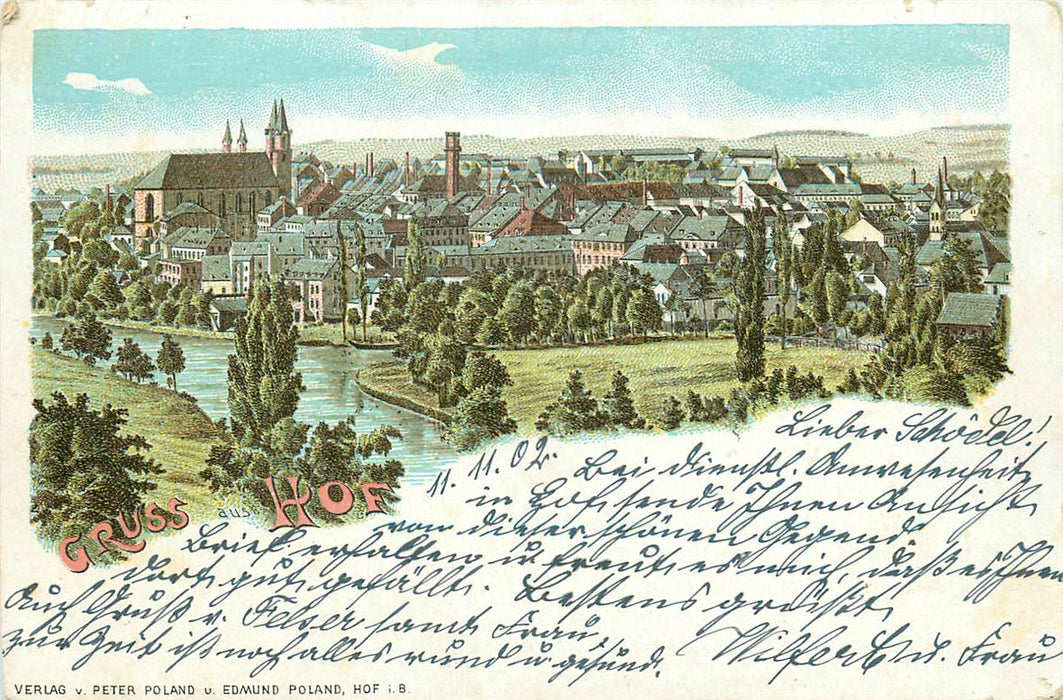 Lieber Schödel!
11.11.02. Bei dienstl. Anwesenheit
in Hof sende Ihnen Ansicht
von dieser schönen Gegend.
Brief erhalten u. freut es mich, daß es Ihnen
dort gut gefällt. Bestens grüßt
Auch Gruß v. Felser samt Frau,
zur Zeit ist noch alles rund u. gesund.
Wilfert u. Frau
GRUSS aus HOF
VERLAG v. PETER POLAND u. EDMUND POLAND, HOF i. B.